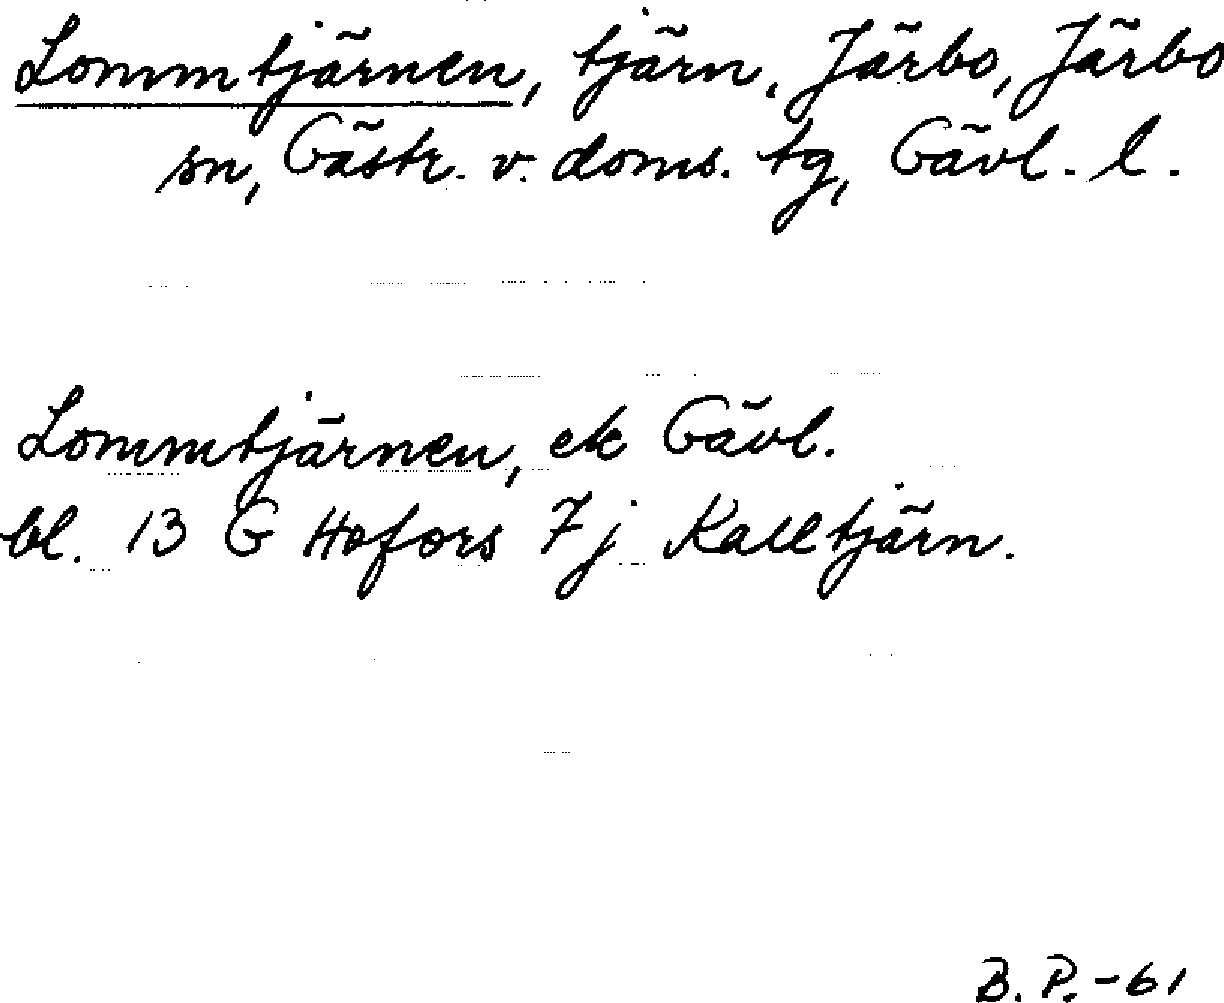 Lommtjärnen, tjärn, Järbo, Järbo
sn, Gästr. v. doms. tg, Gävl. l.
Lommtjärnen, ek Gävl.
bl. 13 G Hofors 7 j Kalltjärn.
B. P. -61